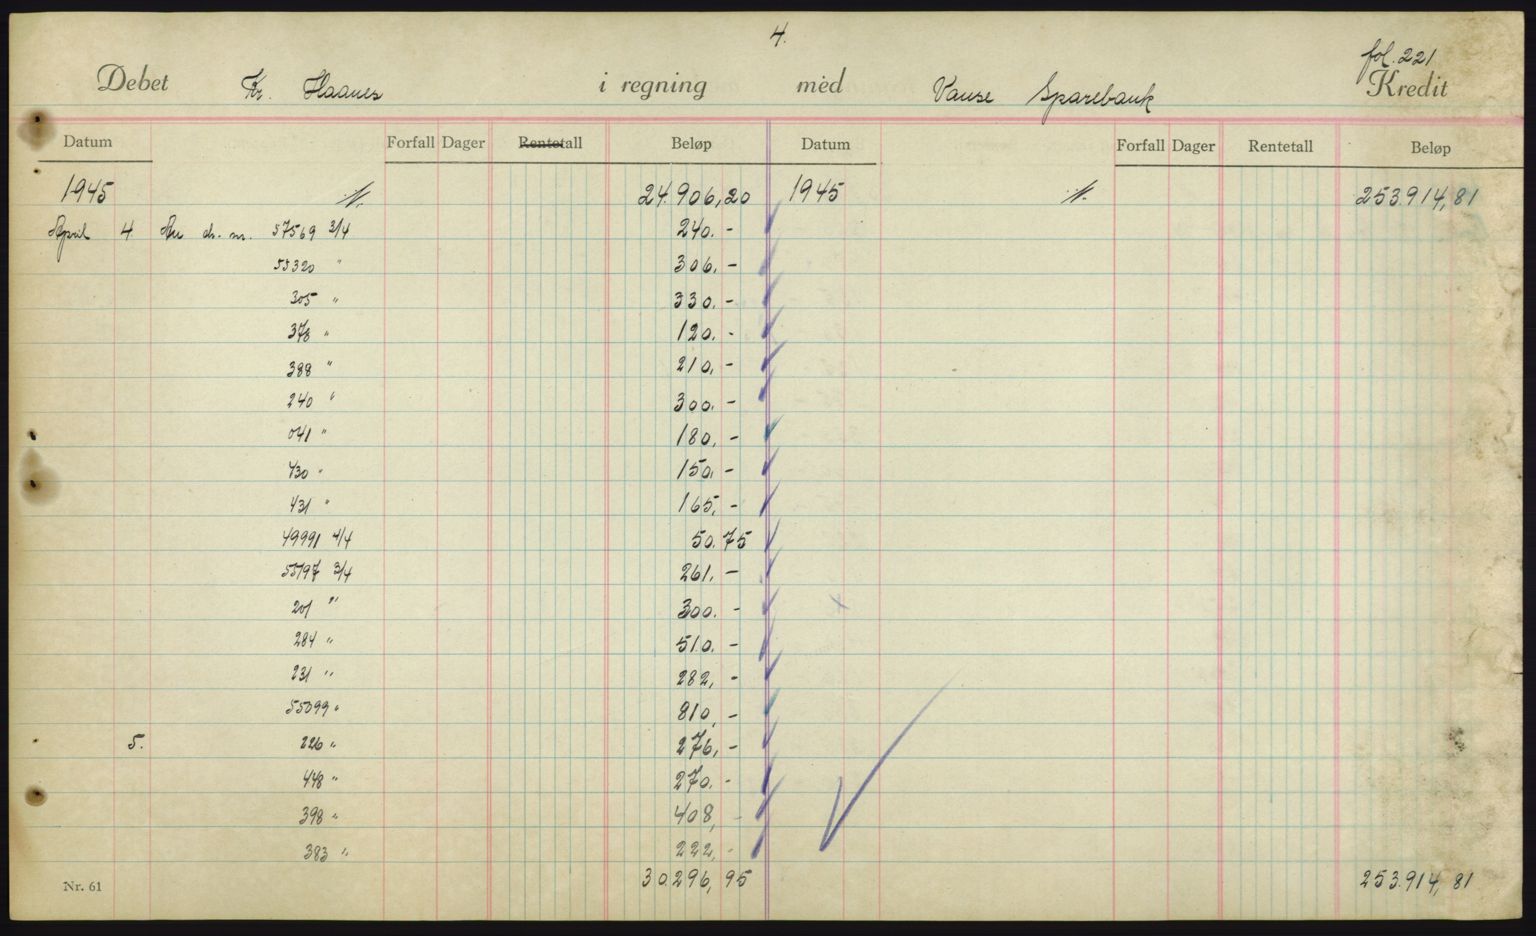 4.
fol. 221
Debet Kr. Haanes i regning med Vanse Sparebank Kredit
Datum Forfall Dager Rentetall Beløp Datum Forfall Dager Rentetall Beløp
1945 24.906,20 1945 253.914,81
April 4 An ch. nr. 57569 3/4 240. -
55320 " 306. -
305 " 330. -
378 " 120. -
388 " 210. -
240 " 300. -
041 " 180. -
430 " 150. -
431 " 165. -
49991 4/4 50.75
55197 3/4 261. -
201 " 300. -
284 " 510. -
231 " 282, -
55099 " 810, -
5. 226 " 276, -
448 " 270. -
398 " 408, -
383 " 222, -
30.296,95 253.914,81
Nr. 61